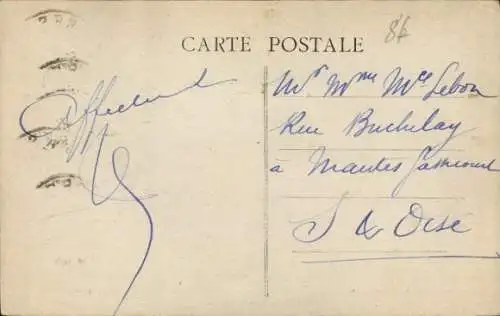 CARTE POSTALE
86
Affectueux
Mr Mme Mce Lebon
Rue Buchelay
à Mantes Gassicourt
S & Oise